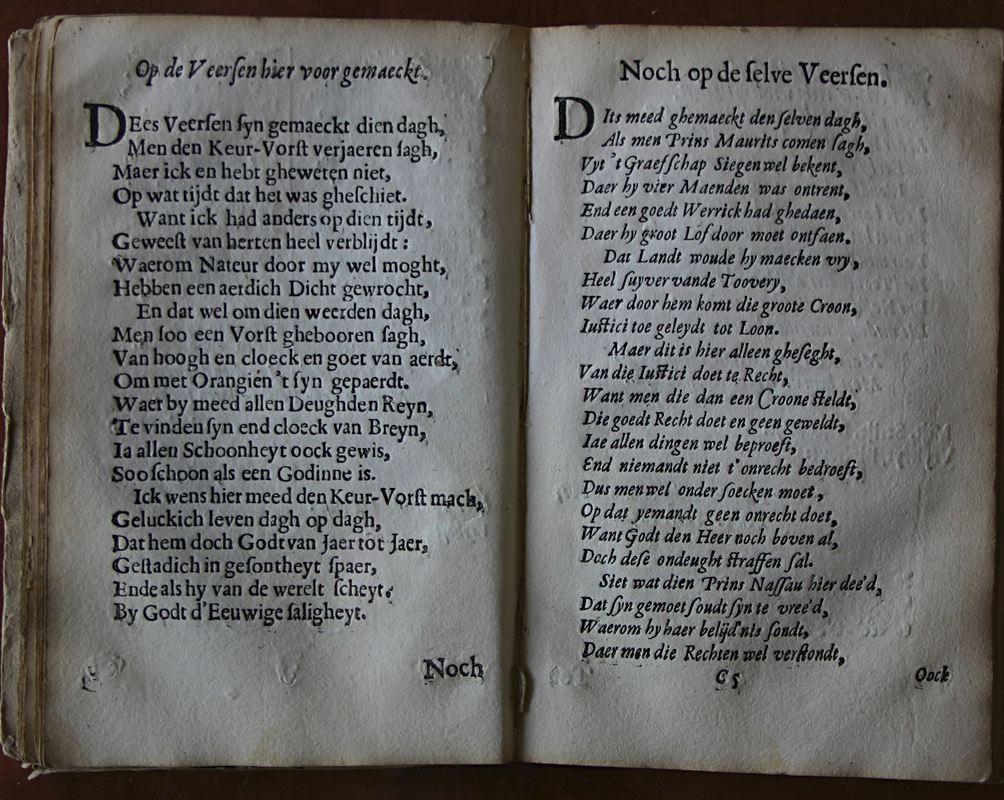 Op de Veerſen hier voor gemaeckt.
DEes Veerſen ſyn gemaeckt dien dagh,
Men den Keur-Vorſt verjaeren ſagh,
Maer ick en hebt gheweten niet,
Op wat tijdt dat het was gheſchiet.
Want ick had anders op dien tijdt,
Geweeſt van herten heel verblijdt:
Waerom Nateur door my wel moght,
Hebben een aerdich Dicht gewrocht,
En dat wel om dien weerden dagh,
Men ſoo een Vorſt ghebooren ſagh,
Van hoogh en cloeck en goet van aerdt,
Om met Orangien 't ſyn gepaerdt.
Waer by meed allen Deughden Reyn,
Te vinden ſyn end cloeck van Breyn,
Ia allen Schoonheyt oock gewis,
Soo ſchoon als een Godinne is.
Ick wens hier meed den Keur-Vorſt mach,
Geluckich leven dagh op dagh,
Dat hem doch Godt van Jaer tot Jaer,
Geſtadich in geſontheyt ſpaer,
Ende als hy van de werelt ſcheyt,
By Godt d'Eeuwige ſaligheyt.
Noch
Noch op de ſelve Veerſen.
DIts meed ghemaeckt den ſelven dagh,
Als men Prins Maurits comen ſagh,
Vyt 't Graefſchap Siegen wel bekent,
Daer hy vier Maenden was ontrent,
End een goedt Werrick had ghedaen,
Daer hy groot Lof door moet ontfaen.
Dat Landt woude hy maecken vry,
Heel ſuyver vande Toovery,
Waer door hem komt die groote Croon,
Iuſtici toe geleydt tot Loon.
Maer dit is hier alleen gheſeght,
Van die Iuſtici doet te Recht,
Want men die dan een Croone ſteldt,
Die goedt Recht doet en geen geweldt,
Iae allen dingen wel beproeft,
End niemandt niet t'onrecht bedroeft,
Dus men wel onder ſoecken moet,
Op dat yemandt geen onrecht doet,
Want Godt den Heer noch boven al,
Doch deſe ondeught ſtraffen ſal.
Siet wat dien Prins Naſſau hier dee'd,
Dat ſyn gemoet ſoudt ſyn te vree'd,
Waerom hy haer belijd'nis ſondt,
Daer men die Rechten wel verſtondt,
G5
Oock